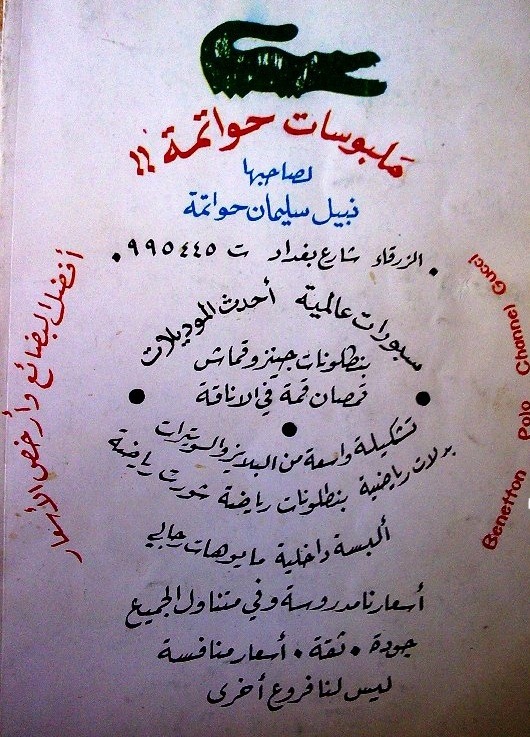 ملبوسات حواتمة !!
لصاحبها
نبيل سليمان حواتمة
الزرقاء شارع بغداد ت ٩٩٥٤٤٥ .
سبورات عالمية أحدث الموديلات
بنطلونات جينز وقماش
قمصان قمة في الاناقة
تشكيلة واسعة من البلايز والسويترات
بدلات رياضية بنطلونات رياضية شورت رياضة
ألبسة داخلية مايوهات رجالي
أسعارنا مدروسة وفي متناول الجميع
جودة . ثقة . أسعار منافسة
ليس لنا فروع أخرى
أفضل البضائع وأرخص الأسعار
Benetton Polo Channel Gucci